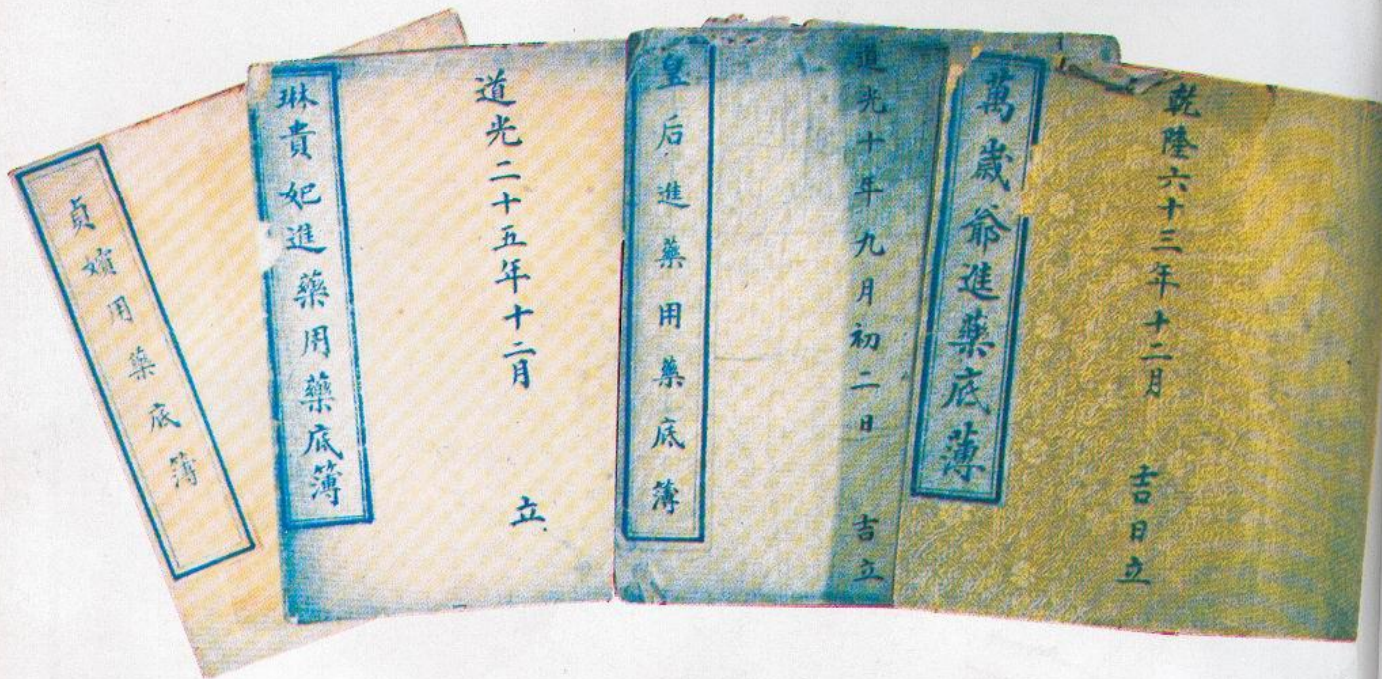 乾隆六十三年十二月 吉日立
萬歲爺進藥底薄
道光十年九月初二日 吉立
皇后進藥用藥底薄
道光二十五年十二月 立
琳貴妃進藥用藥底簿
貞嬪用藥底簿